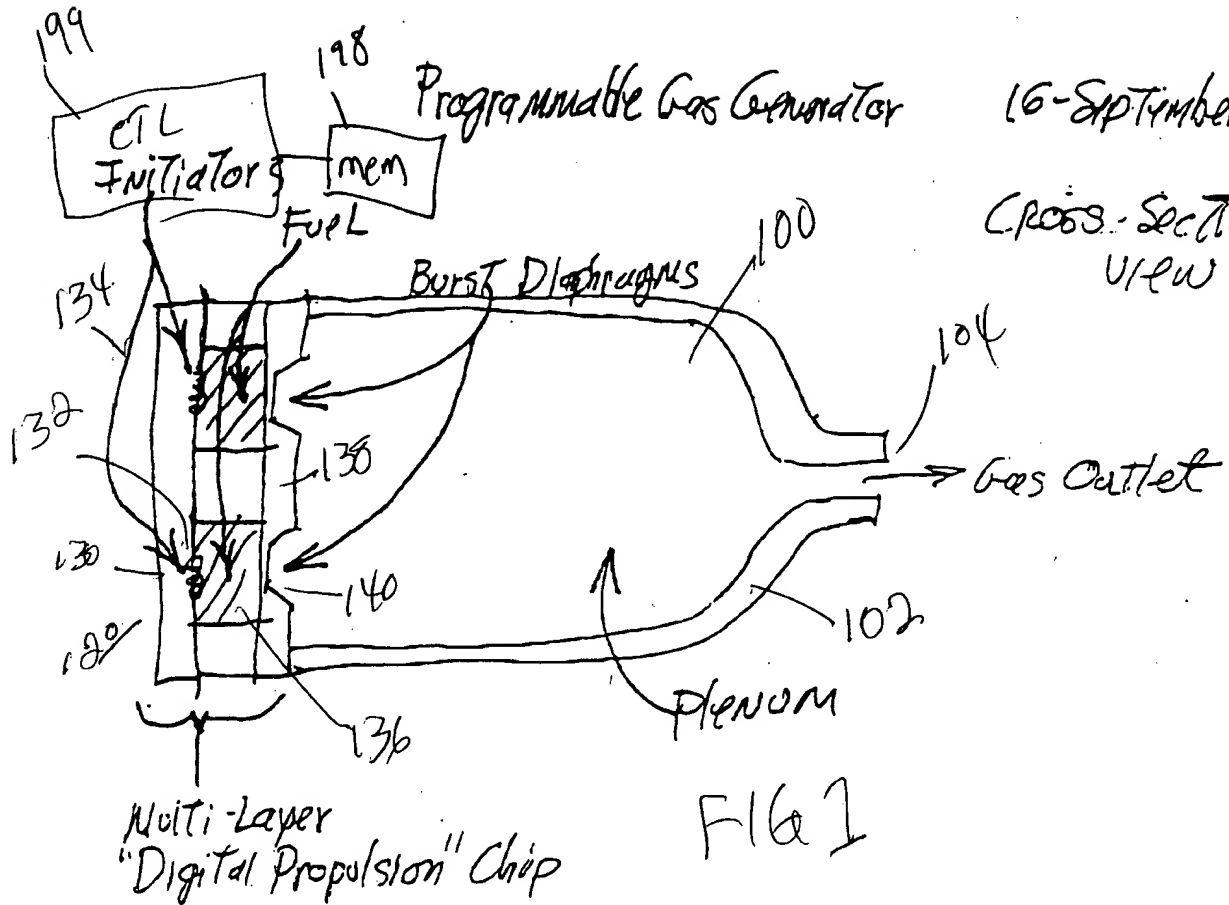 199
198
Programmable Gas Generator
16-September
CTL
Initiators
mem
Fuel
Cross-Sect
View
100
Burst Diaphragms
134
104
132
138
Gas Outlet
130
140
102
120
136
Plenum
Multi-Layer
"Digital Propulsion" Chip
FIG 1